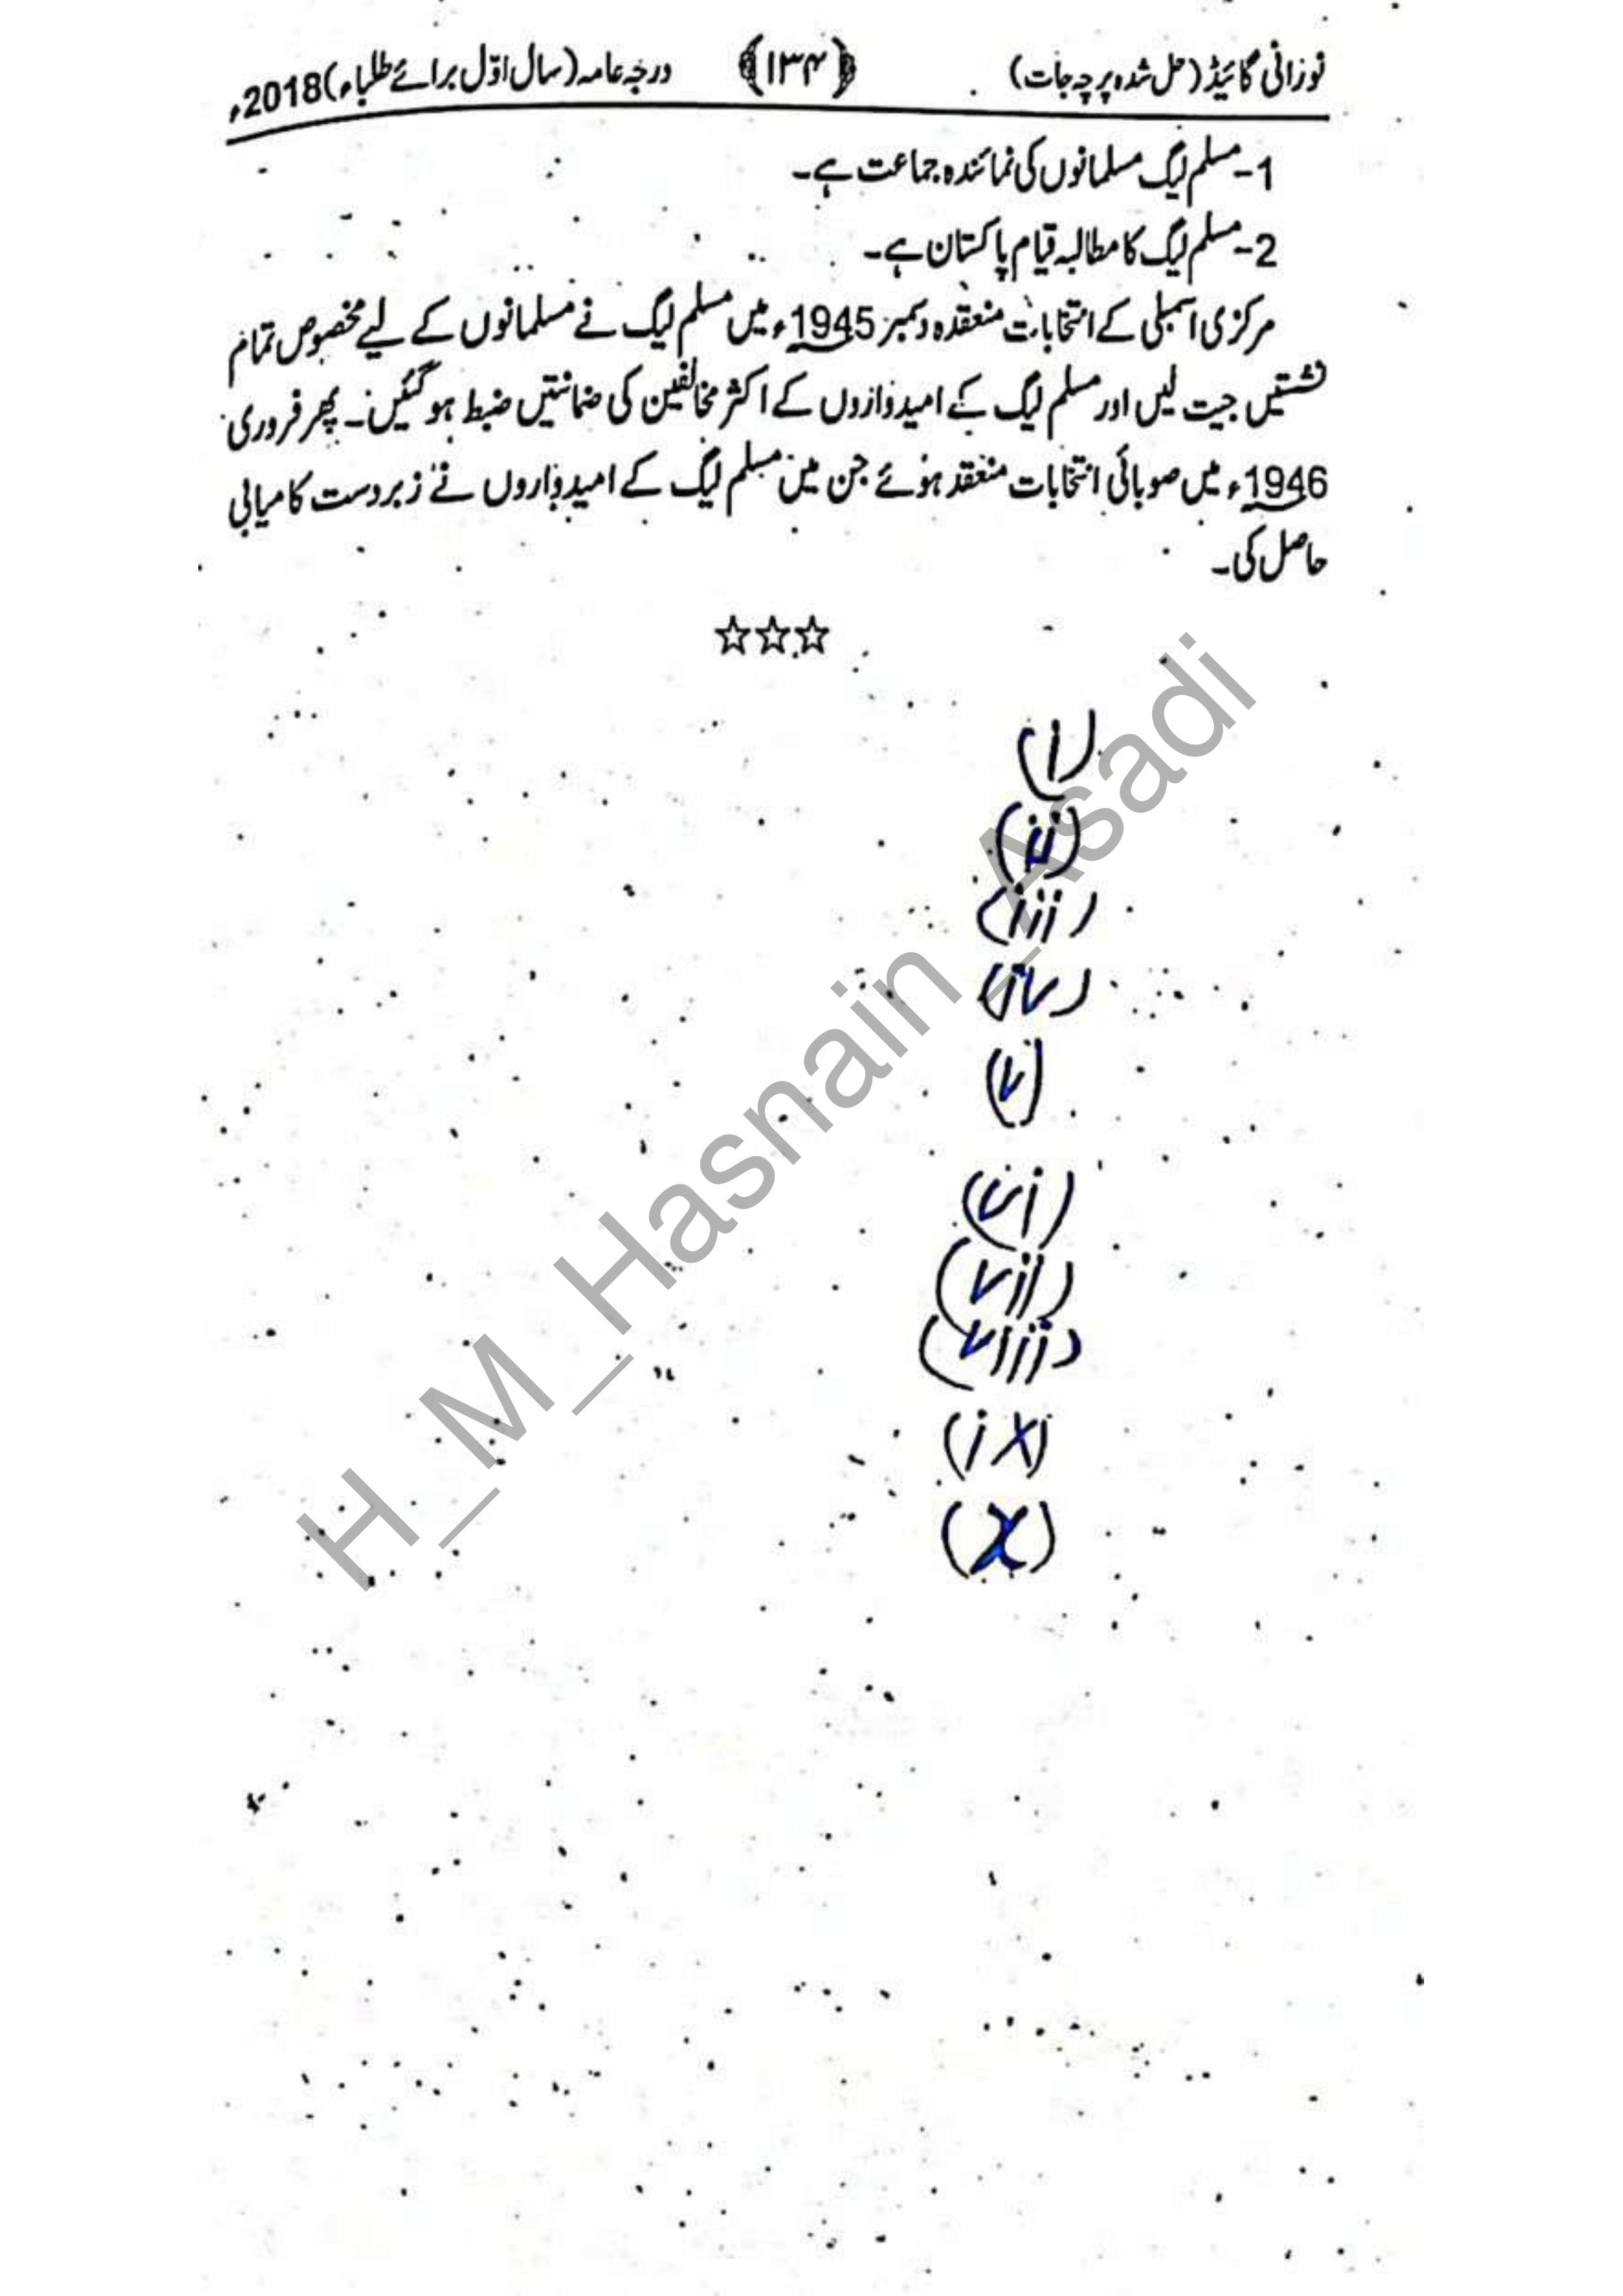 نورانی گائیڈ (حل شدہ پرچہ جات) ﴿۱۳۴﴾ درجہ عامہ (سال اوّل برائے طلباء) 2018ء
1- مسلم لیگ مسلمانوں کی نمائندہ جماعت ہے۔
2- مسلم لیگ کا مطالبہ قیام پاکستان ہے۔
مرکزی اسمبلی کے انتخابات منعقدہ دسمبر 1945ء میں مسلم لیگ نے مسلمانوں کے لیے مخصوص تمام
نشستیں جیت لیں اور مسلم لیگ کے امیدواروں کے اکثر مخالفین کی ضمانتیں ضبط ہو گئیں۔ پھر فروری
1946ء میں صوبائی انتخابات منعقد ہوئے جن میں مسلم لیگ کے امیدواروں نے زبردست کامیابی
حاصل کی۔
☆☆☆
(i)
(ii)
(iii)
(iv)
(v)
(vi)
(vii)
(viii)
(ix)
(x)
H_M_Hasnain_Asadi